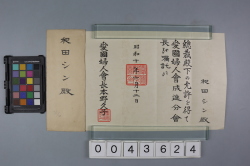 総裁殿下ノ允許ヲ得テ
愛國婦人會成進分會
長ヲ囑託ス
昭和十年六月十六日
愛國婦人會長本野久子
田シン殿
田シン殿
0043624